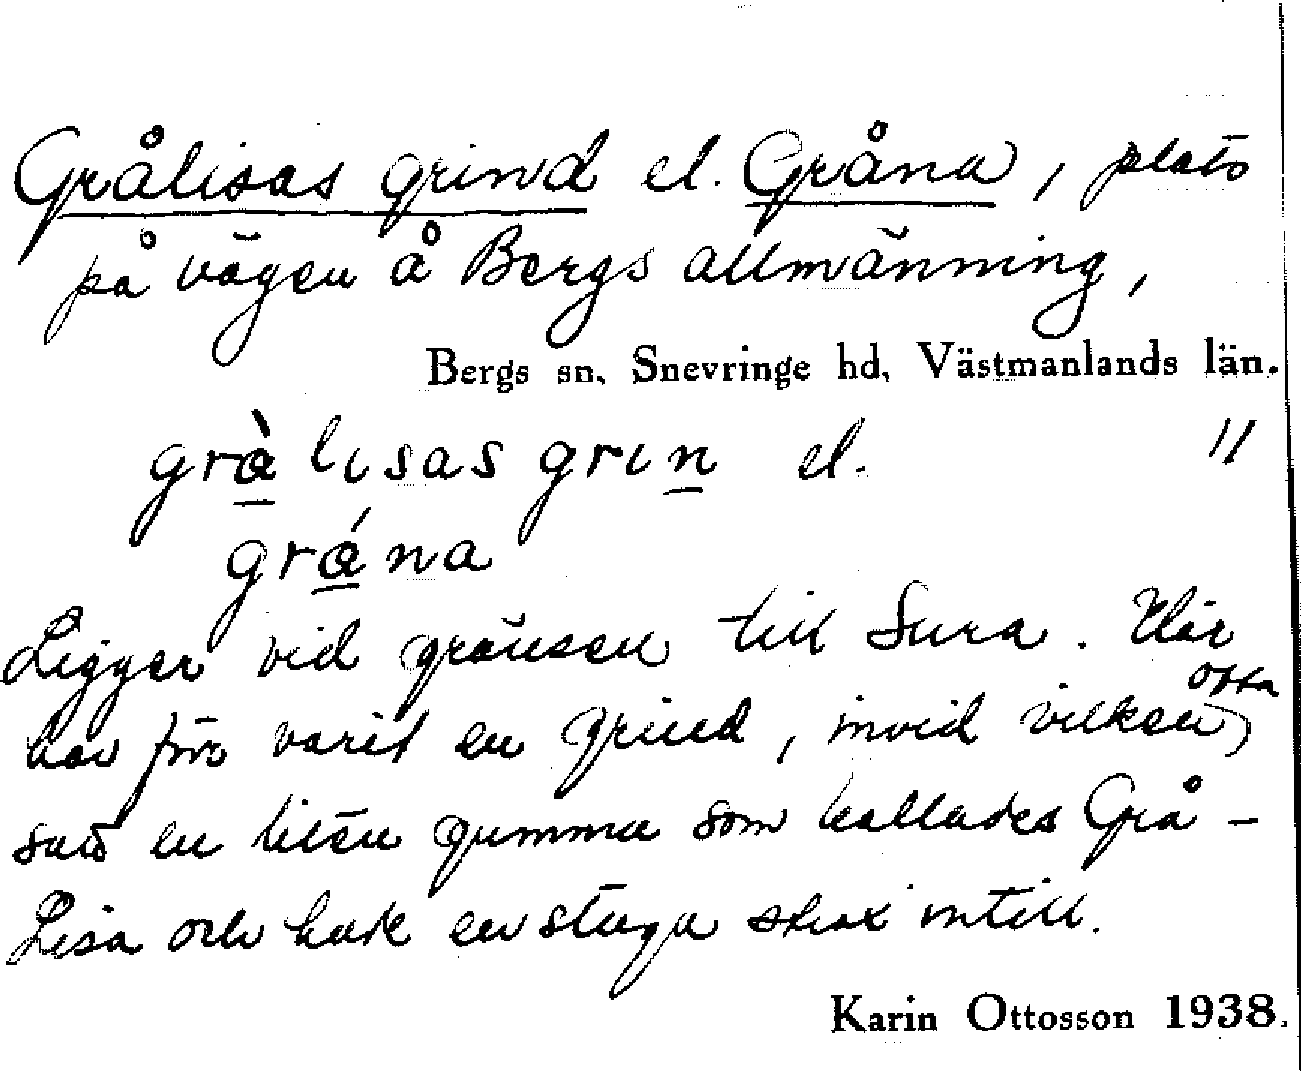 Grålisas grind el. Gråna, plats
på vägen å Bergs allmänning,
Bergs sn, Snevringe hd, Västmanlands län.
grà̱lısas grın̲ el. "
grá̱na
Ligger vid gränsen till Sura. Där
har förr varit en grind, invid vilken ofta
satt en liten gumma som kallades Grå-
Lisa och hade en stuga strax intill.
Karin Ottosson 1938.